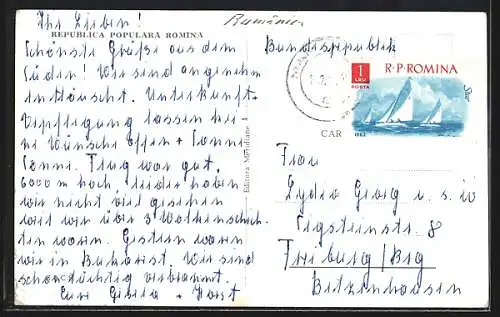 Ihr Lieben!
Rumänien
REPUBLICA POPULARA ROMINA
Schönste Grüße aus dem
Süden! Wir sind angenehm
enttäuscht. Unterkunft-
Verpflegung lassen kei-
ne Wünsche offen + Sonne
Sonne. Flug war gut.
6000 m hoch, leider haben
wir nicht viel gesehen
weil wir über 3 Wolkenschich-
ten waren. Gestern waren
wir in Bukarest. Wir sind
schon tüchtig verbrannt.
Eure Gisela + Horst
Editura Meridiane
Bundesrepublik
1
LEU
POSTA
R·P·ROMINA
1962
CAR
Frau
Lydia Georg
8
Freiburg/Brg
Betzenhausen